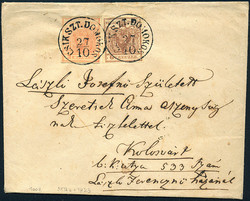 CSIKSZT.DOMOKOS
27
10
CSIKSZT.DOMOKOS
27
10
László Josefné Született
Szeretsi Anna Aszony Ság
nak tisztelettel
Kolosvárt
b: k: utza 533 Szám
László Ferenczné házánál